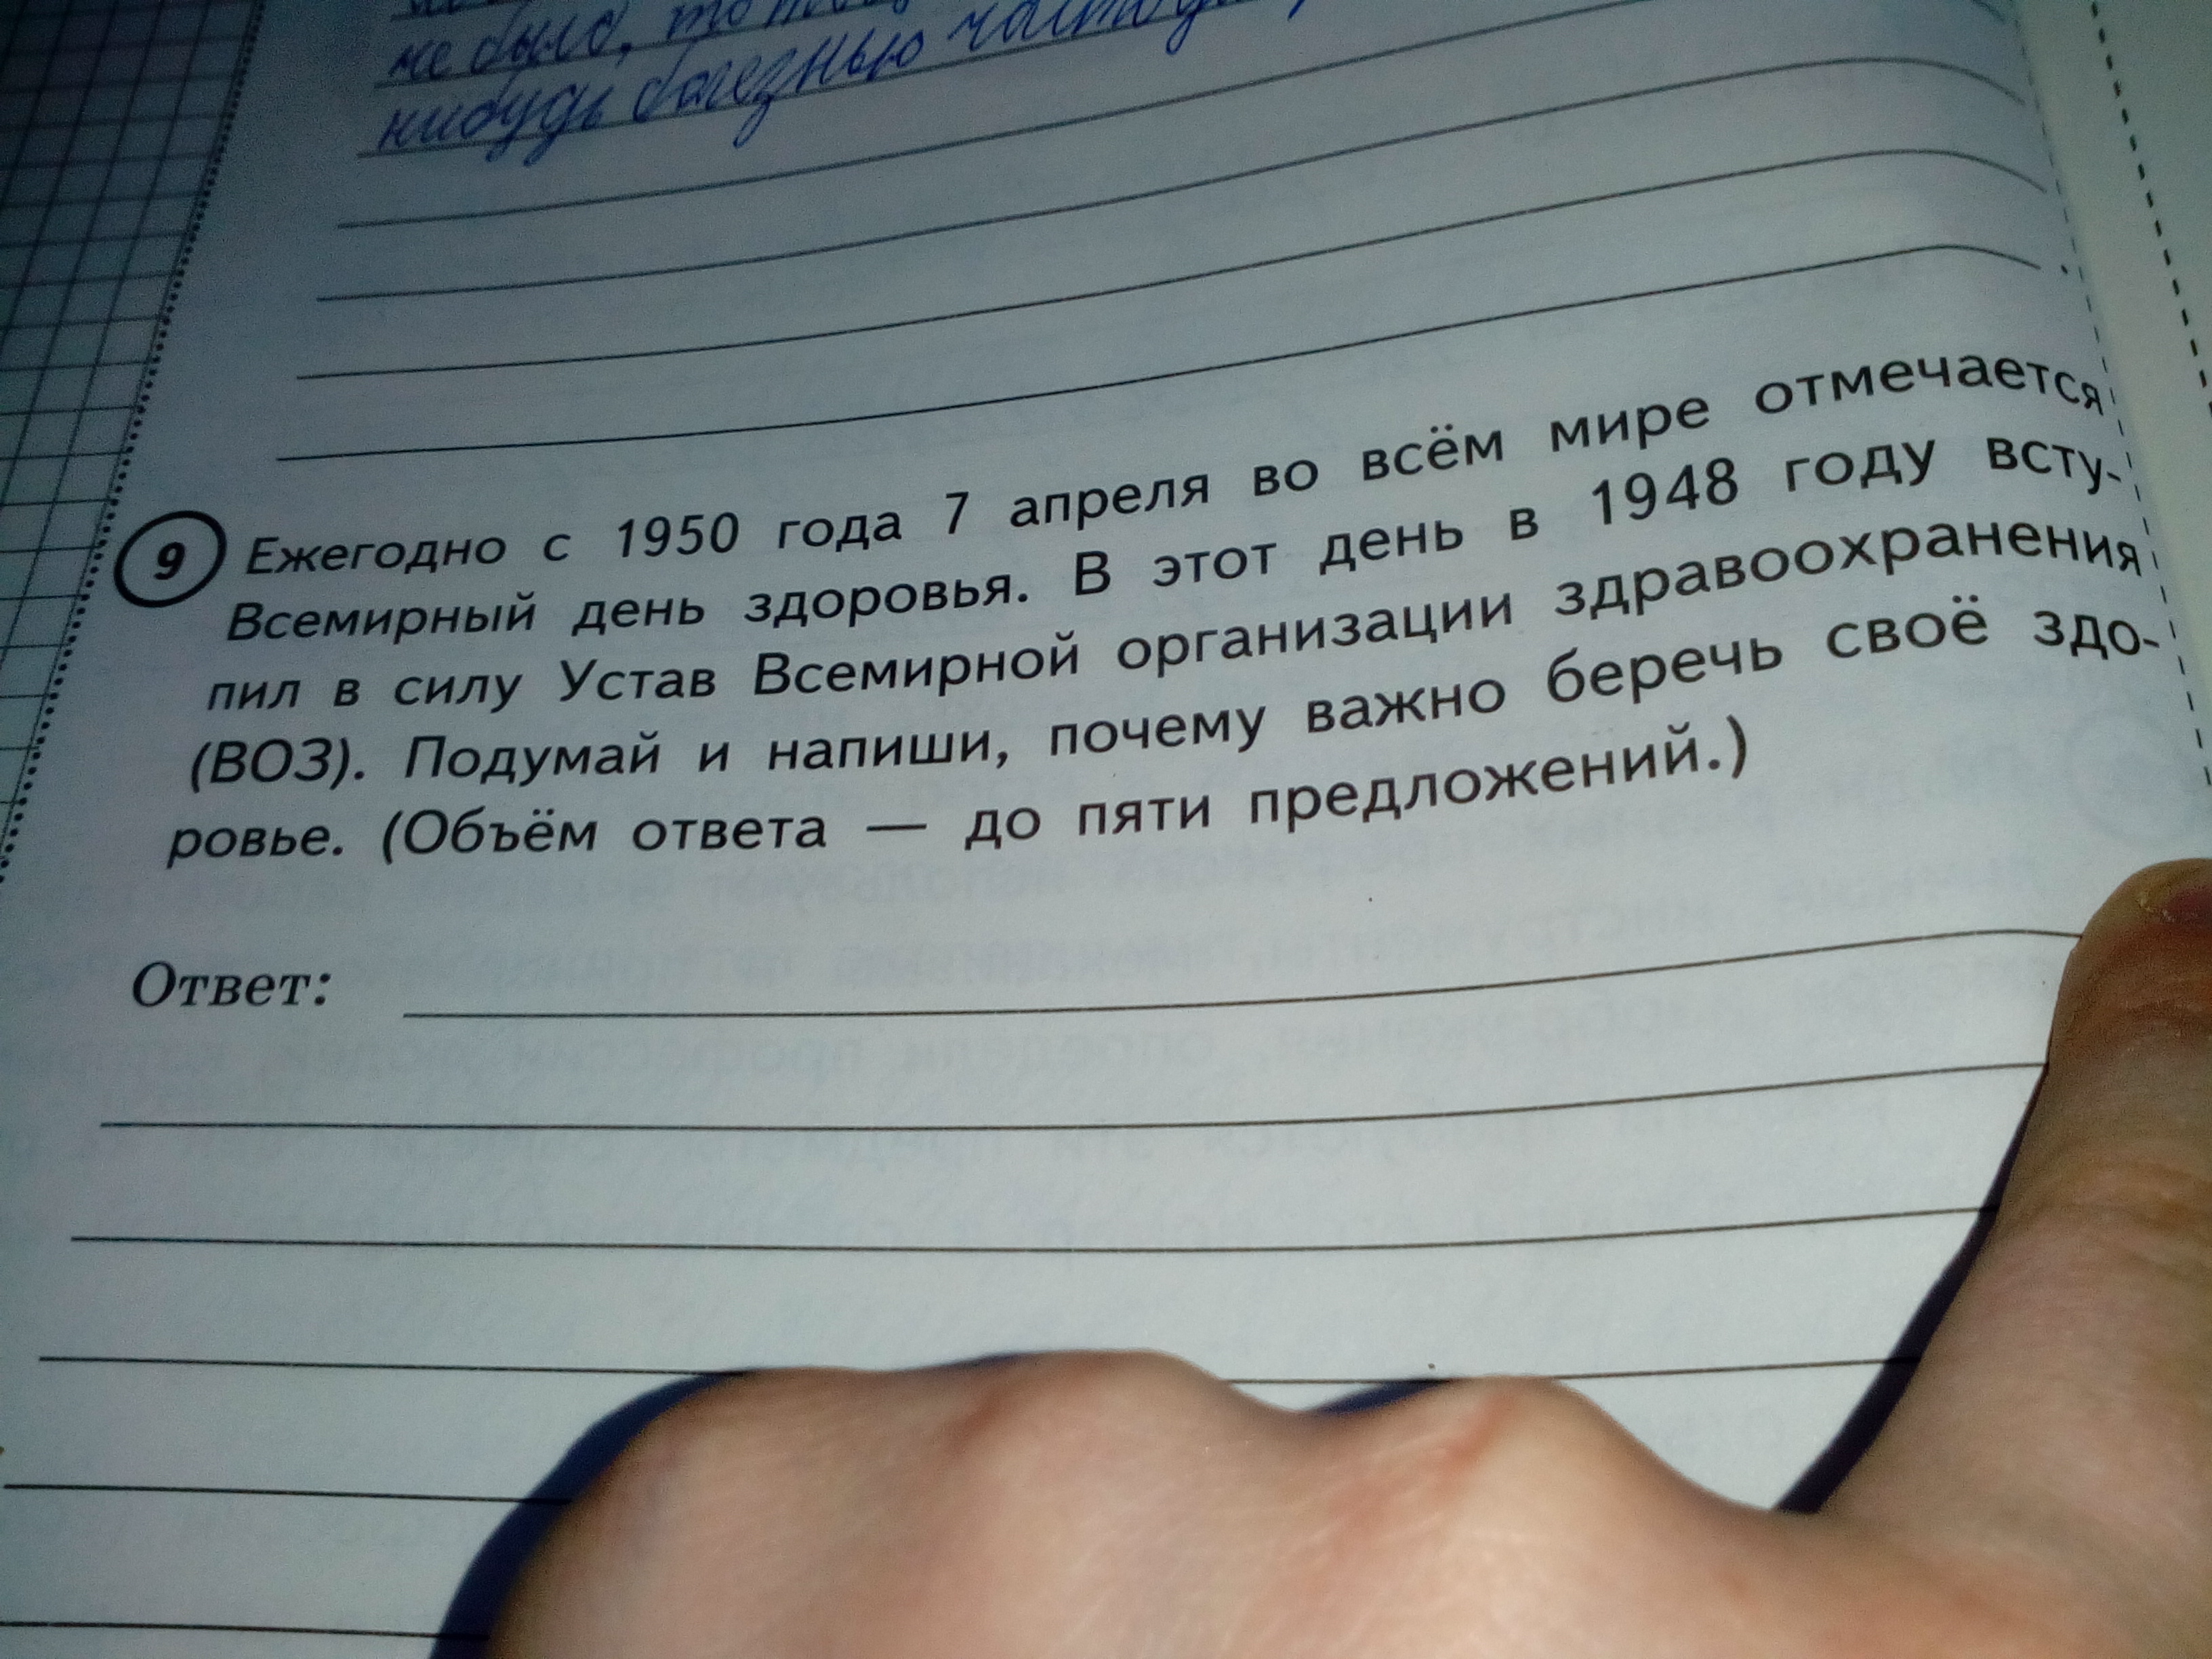 не было, то
нибудь болезнью часто
9 Ежегодно с 1950 года 7 апреля во всём мире отмечается
Всемирный день здоровья. В этот день в 1948 году всту-
пил в силу Устав Всемирной организации здравоохранения
(ВОЗ). Подумай и напиши, почему важно беречь своё здо-
ровье. (Объём ответа — до пяти предложений.)
Ответ: